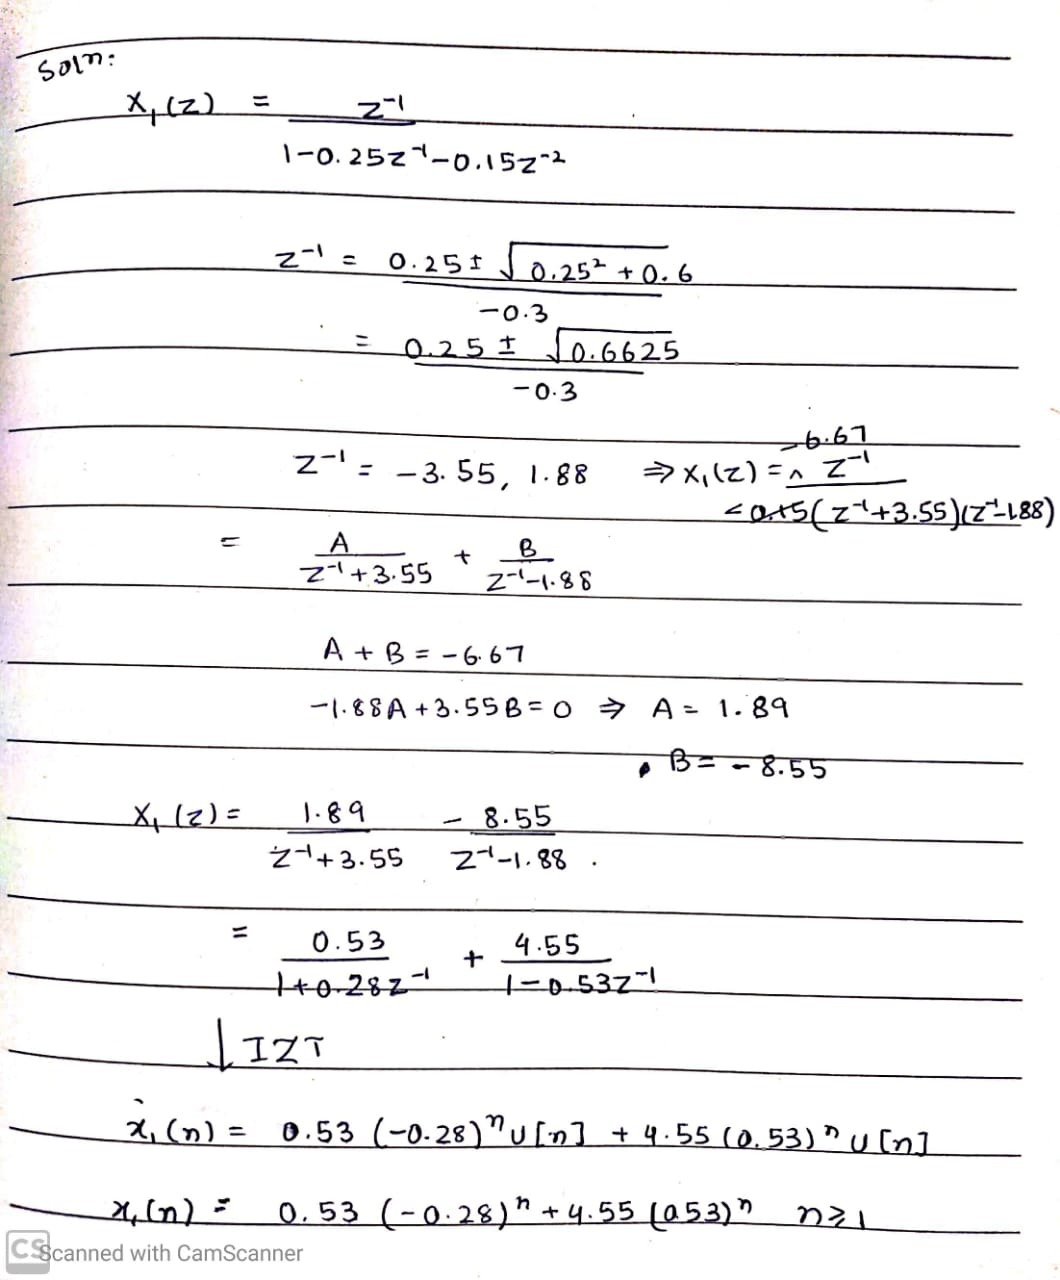 Soln:
X₁(z) = z⁻¹
1-0.25z⁻¹-0.15z⁻²
z⁻¹ = 0.25 ± √0.25² + 0.6
-0.3
= 0.25 ± √0.6625
-0.3
-6.67
z⁻¹ = -3.55, 1.88 ⇒ X₁(z) = ^ z⁻¹
(z⁻¹+3.55)(z⁻¹-1.88)
= A + B
z⁻¹+3.55 z⁻¹-1.88
A + B = -6.67
-1.88A + 3.55B = 0 ⇒ A = 1.89
B = -8.55
X₁(z) = 1.89 - 8.55
z⁻¹+3.55 z⁻¹-1.88 .
= 0.53 + 4.55
1+0.28z⁻¹ 1-0.53z⁻¹
↓ IZT
x₁(n) = 0.53 (-0.28)ⁿ u[n] + 4.55 (0.53)ⁿ u[n]
x₁(n) = 0.53 (-0.28)ⁿ + 4.55 (0.53)ⁿ n≥1
CS Scanned with CamScanner